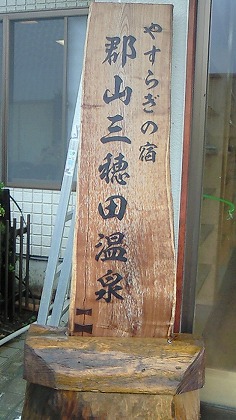 やすらぎの宿
郡山三穂田温泉